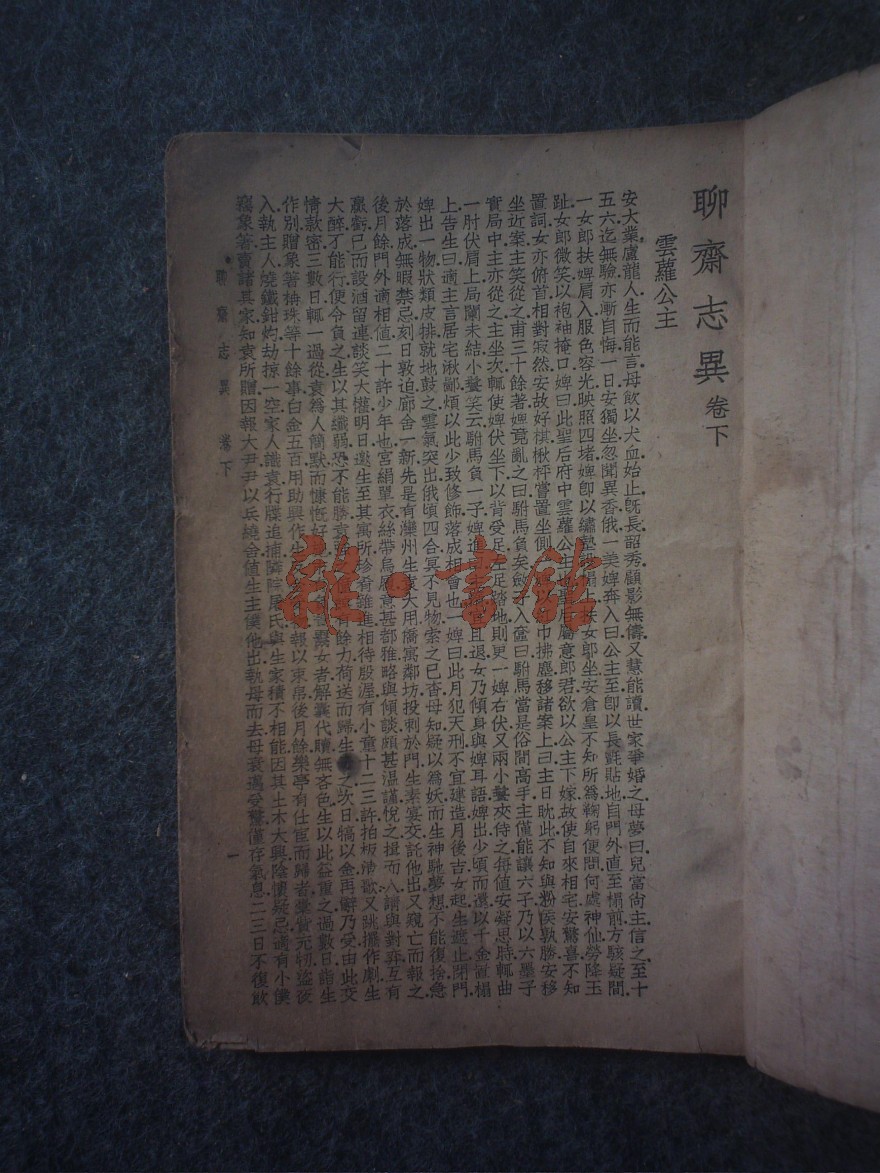 聊齋志異 卷下
雲蘿公主
安大業.盧龍人.生而能言.母飲以犬血始止.既長.韶秀.顧影無儔.又慧能讀.世家爭婚之.母夢曰.兒當尚主.信之.至十
五六迄無驗.亦漸自悔.一日安獨坐.忽聞異香.俄一美婢奔入曰.公主至.即以長氈貼地.自門外直至榻前.方駭疑間.
一女郎扶婢肩入.服色容光.映照四堵.婢即以繡墊設榻上.扶女郎坐.安倉皇不知所為.鞠躬便問.何處神仙.勞降玉
趾.女郎微笑.以袍袖掩口.婢曰.此聖后府中雲蘿公主也.聖后屬意郎君.欲以公主下嫁.故使自來相宅.安驚喜.不知
置詞.女亦俯首.相對寂然.安故好棋.楸枰嘗置坐側.巾拂塵.移諸案上曰.主日耽此.不知與粉侯孰勝.安移
坐近案.主笑從之.甫三十餘著.婢竟亂之曰.駙馬負矣.斂子入盒曰.駙馬當是俗間高手.主僅能讓六子.乃以六黑子
實局中.主亦從之.主坐次.輒使婢伏坐下.以背受足.左足踏地.則更一婢右伏.又兩小鬟夾侍之.每值安凝思時.輒曲
一肘伏肩上.局闌未結.小鬟笑云.駙馬負一子.婢進且退.女乃傾身與婢耳語.婢出.少頃而還.以千金置榻
上.告生曰.適主言居宅湫鄙.煩以此少致修飾.落成相會也.一婢曰.此月犯天刑.不宜建造.月後吉.女起.生遮止.閉門.
婢出一物.狀類皮排.就地鼓之.雲氣突出.俄頃四合.冥不見物.索之已杳.母知.疑以為妖.而生神馳夢想.不能復捨.急
於落成.無暇禁忌.刻日敦迫.廊舍一新.先是有灤州生袁大用.僑寓鄰坊.投刺於門.生素寡交.託他出.又窺亡而報之.
後月餘.門外適相值.二十許少年也.宮絹單衣.絲帶烏履.意甚都雅.略與傾談.頗甚溫謹.悅之.揖而入.請與對弈.互有
贏虧.已而設酒留連.談笑大懽.明日邀生至其寓所.珍肴雜進.相待殷渥.有小童十二三許.拍板清歌.又跳擲作劇.生
大醉不能行.便令負之.生以其纖弱.恐不能勝.袁有餘力.荷送而歸.生之.次日犒以金.再辭乃受.由此交
情款密.三數日輒一過從.袁為人簡默.而慷慨好鬻女者.解囊代贖.無吝色.生以此益重之.過數日.詣生
作別.贈象箸柟珠等十餘事.白金五百.用助興作.生報以束帛.後月餘.樂亭有仕宦而歸者.橐貲充牣.盜夜
入.執主人.燒鐵鉗灼.劫掠一空.家人識袁.行牒追捕.鄰院屠氏.與生家積不相能.因其土木大興.陰懷疑忌.適有小僕
竊象箸賣諸其家.知袁所贈.因報大尹.尹以兵繞舍.值生主僕他出.執母而去.母衰邁受驚.僅存氣息.二三日不復飲
聊齋志異 卷下
一
雜·書館